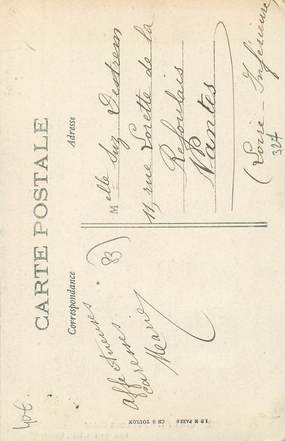 CARTE POSTALE
Correspondance
Adresse
Affectueuses
caresses
Marie
83
Melle Suz
11, rue Lorette de la
Refoulais
Nantes
(Loire-Inférieure)
324
40€
CH 8 TOULON